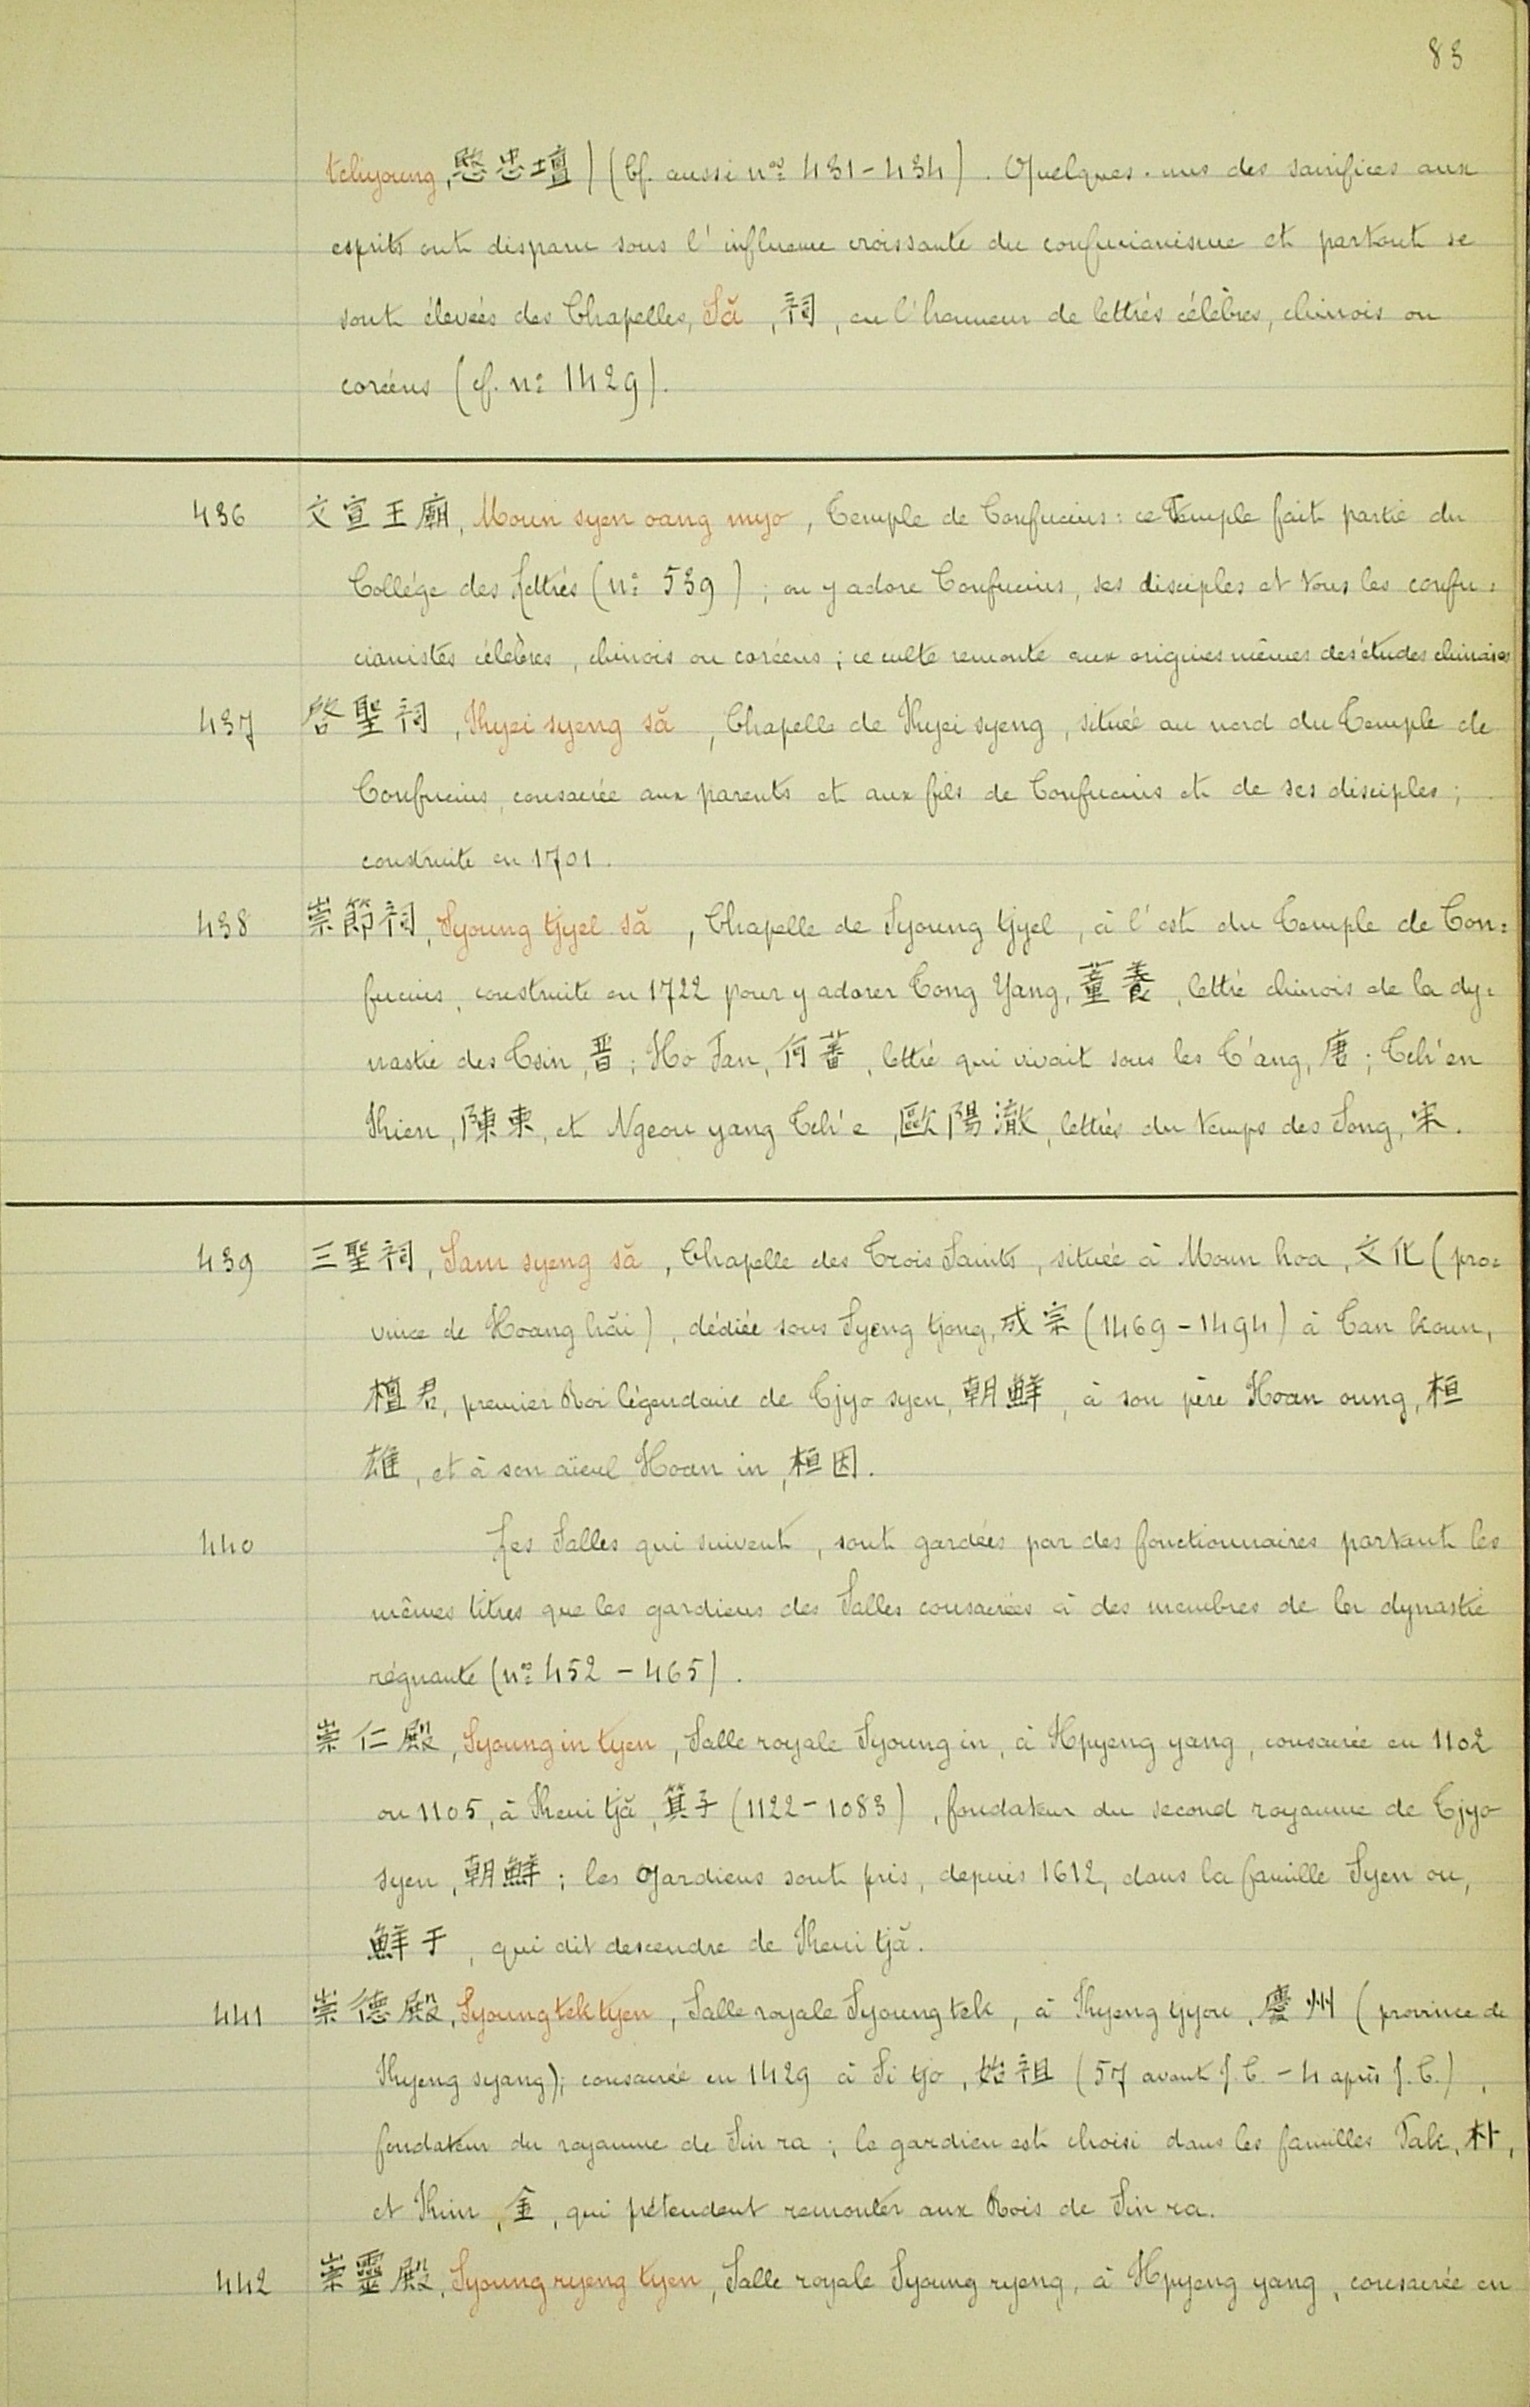 83
tchyoung, 愍忠壇) (Cf. aussi nos 431-434). Quelques-uns des sacrifices aux
esprits ont disparu sous l'influence croissante du confucianisme et partout se
sont élevées des Chapelles, Să, 祠, en l'honneur de lettrés célèbres, chinois ou
coréens (cf. no 1429).
436 文宣王廟, Moun syen oang myo, Temple de Confucius: ce Temple fait partie du
Collége des Lettrés (no 539); on y adore Confucius, ses disciples et tous les confu=
cianistes célèbres, chinois ou coréens; ce culte remonte aux origines mêmes des études chinoises
437 啓聖祠, Kyei syeng să, Chapelle de Kyei syeng, située au nord du Temple de
Confucius, consacrée aux parents et aux fils de Confucius et de ses disciples;
construite en 1701.
438 崇節祠, Syoung tjyel să, Chapelle de Syoung tjyel, à l'est du Temple de Con=
fucius, construite en 1722 pour y adorer Tong Yang, 董養, lettré chinois de la dy=
nastie des Tsin, 晋; Ho Fan, 何蕃, lettré qui vivait sous les T'ang, 唐; Tch'en
Kien, 陳東, et Ngeou yang Tch'e, 歐陽澈, lettrés du temps des Song, 宋.
439 三聖祠, Sam syeng să, Chapelle des Trois Saints, située à Moun hoa, 文化 (pro=
vince de Hoang hăi), dédiée sous Syeng tjong, 成宗 (1469-1494) à Tan koun,
檀君, premier Roi légendaire de Tjyo syen, 朝鮮, à son père Hoan oung, 桓
雄, et à son aïeul Hoan in, 桓因.
440 Les Salles qui suivent, sont gardées par des fonctionnaires portant les
mêmes titres que les gardiens des Salles consacrées à des membres de la dynastie
régnante (nos 452-465).
崇仁殿, Syoung in tyen, Salle royale Syoung in, à Hpyeng yang, consacrée en 1102
ou 1105, à Keui tjă, 箕子 (1122-1083), fondateur du second royaume de Tjyo
syen, 朝鮮; les gardiens sont pris, depuis 1612, dans la famille Syen ou,
鮮于, qui dit descendre de Keui tjă.
441 崇德殿, Syoung tek tyen, Salle royale Syoung tek, à Kyeng tjyou, 慶州 (province de
Kyeng syang); consacrée en 1429 à Si tjo, 始祖 (57 avant J. C. - 4 après J. C.),
fondateur du royaume de Sin ra; le gardien est choisi dans les familles Pak, 朴,
et Kim, 金, qui pétendent remonter aux Rois de Sin ra.
442 崇靈殿, Syoung ryeng tyen, Salle royale Syoung ryeng, à Hpyeng yang, consacrée en